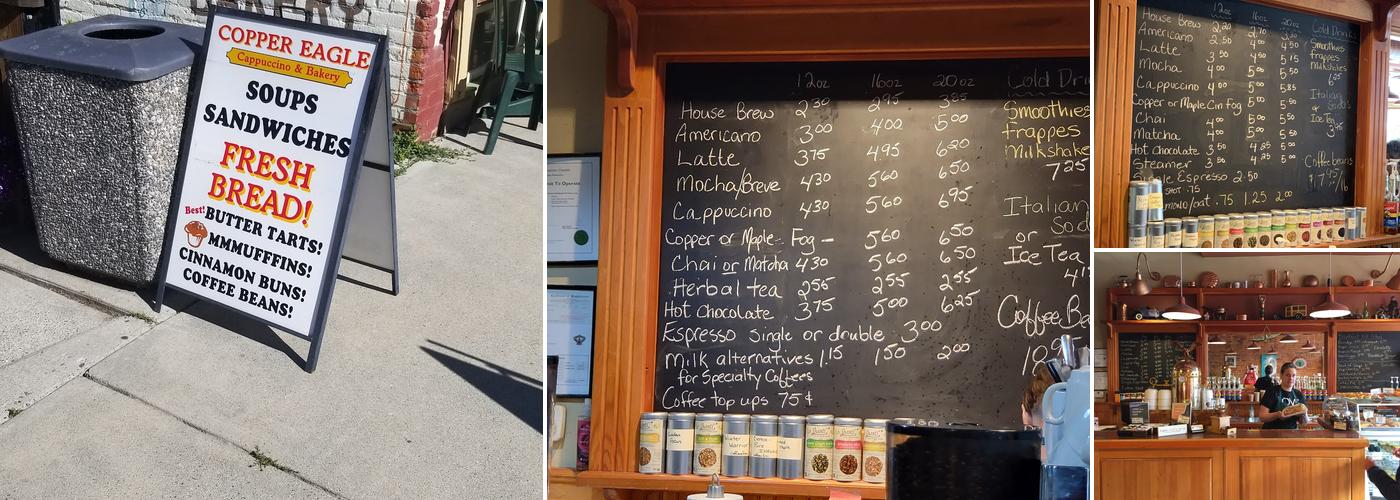 BAKERY
COPPER EAGLE
Cappuccino & Bakery
SOUPS
SANDWICHES
FRESH
BREAD!
Best! BUTTER TARTS!
MMMUFFFINS!
CINNAMON BUNS!
COFFEE BEANS!
12oz 16oz 20oz
House Brew 2 30 2 95 3 85
Americano 3 00 4 00 5 00
Latte 3 75 4.95 6 20
Mocha/Breve 4 30 5 60 6 50
Cappuccino 4 30 5 60 6 95
Copper or Maple Fog – 5 60 6 50
Chai or Matcha 4 30 5 60 6 50
Herbal tea 2 55 2 55 2 55
Hot Chocolate 3 75 5 00 6 25
Espresso single or double 3 00
Milk alternatives 1.15 1 50 2 00
for Specialty Coffees
Coffee top ups 75¢
Cold Drin
Smoothies
frappes
Milkshake
7 25
Italian
Soda
or
Ice Tea
Coffee Ba
12oz 16oz 20oz
House Brew 2.20 2.70
Americano 2.50 4 00 4 50
Latte 3 50 4 50 5 15
Mocha 4 00 5 00 5 50
Cappuccino 4 00 5 00 5.85
Copper or Maple Cin fog 5 00 5 50
Chai 4 00 5 00 5 50
Matcha 4 00 5 00 5 50
Hot chocolate 3 50 4 25 5 00
Steamer 3 50 4 25 5 00
Single Espresso 2.50
shot .75
.75 1.25 2 00
Cold Drinks
Smoothies
frappes
Milkshakes
Italian
Soda's
or
Ice Tea
3 45
Coffee beans